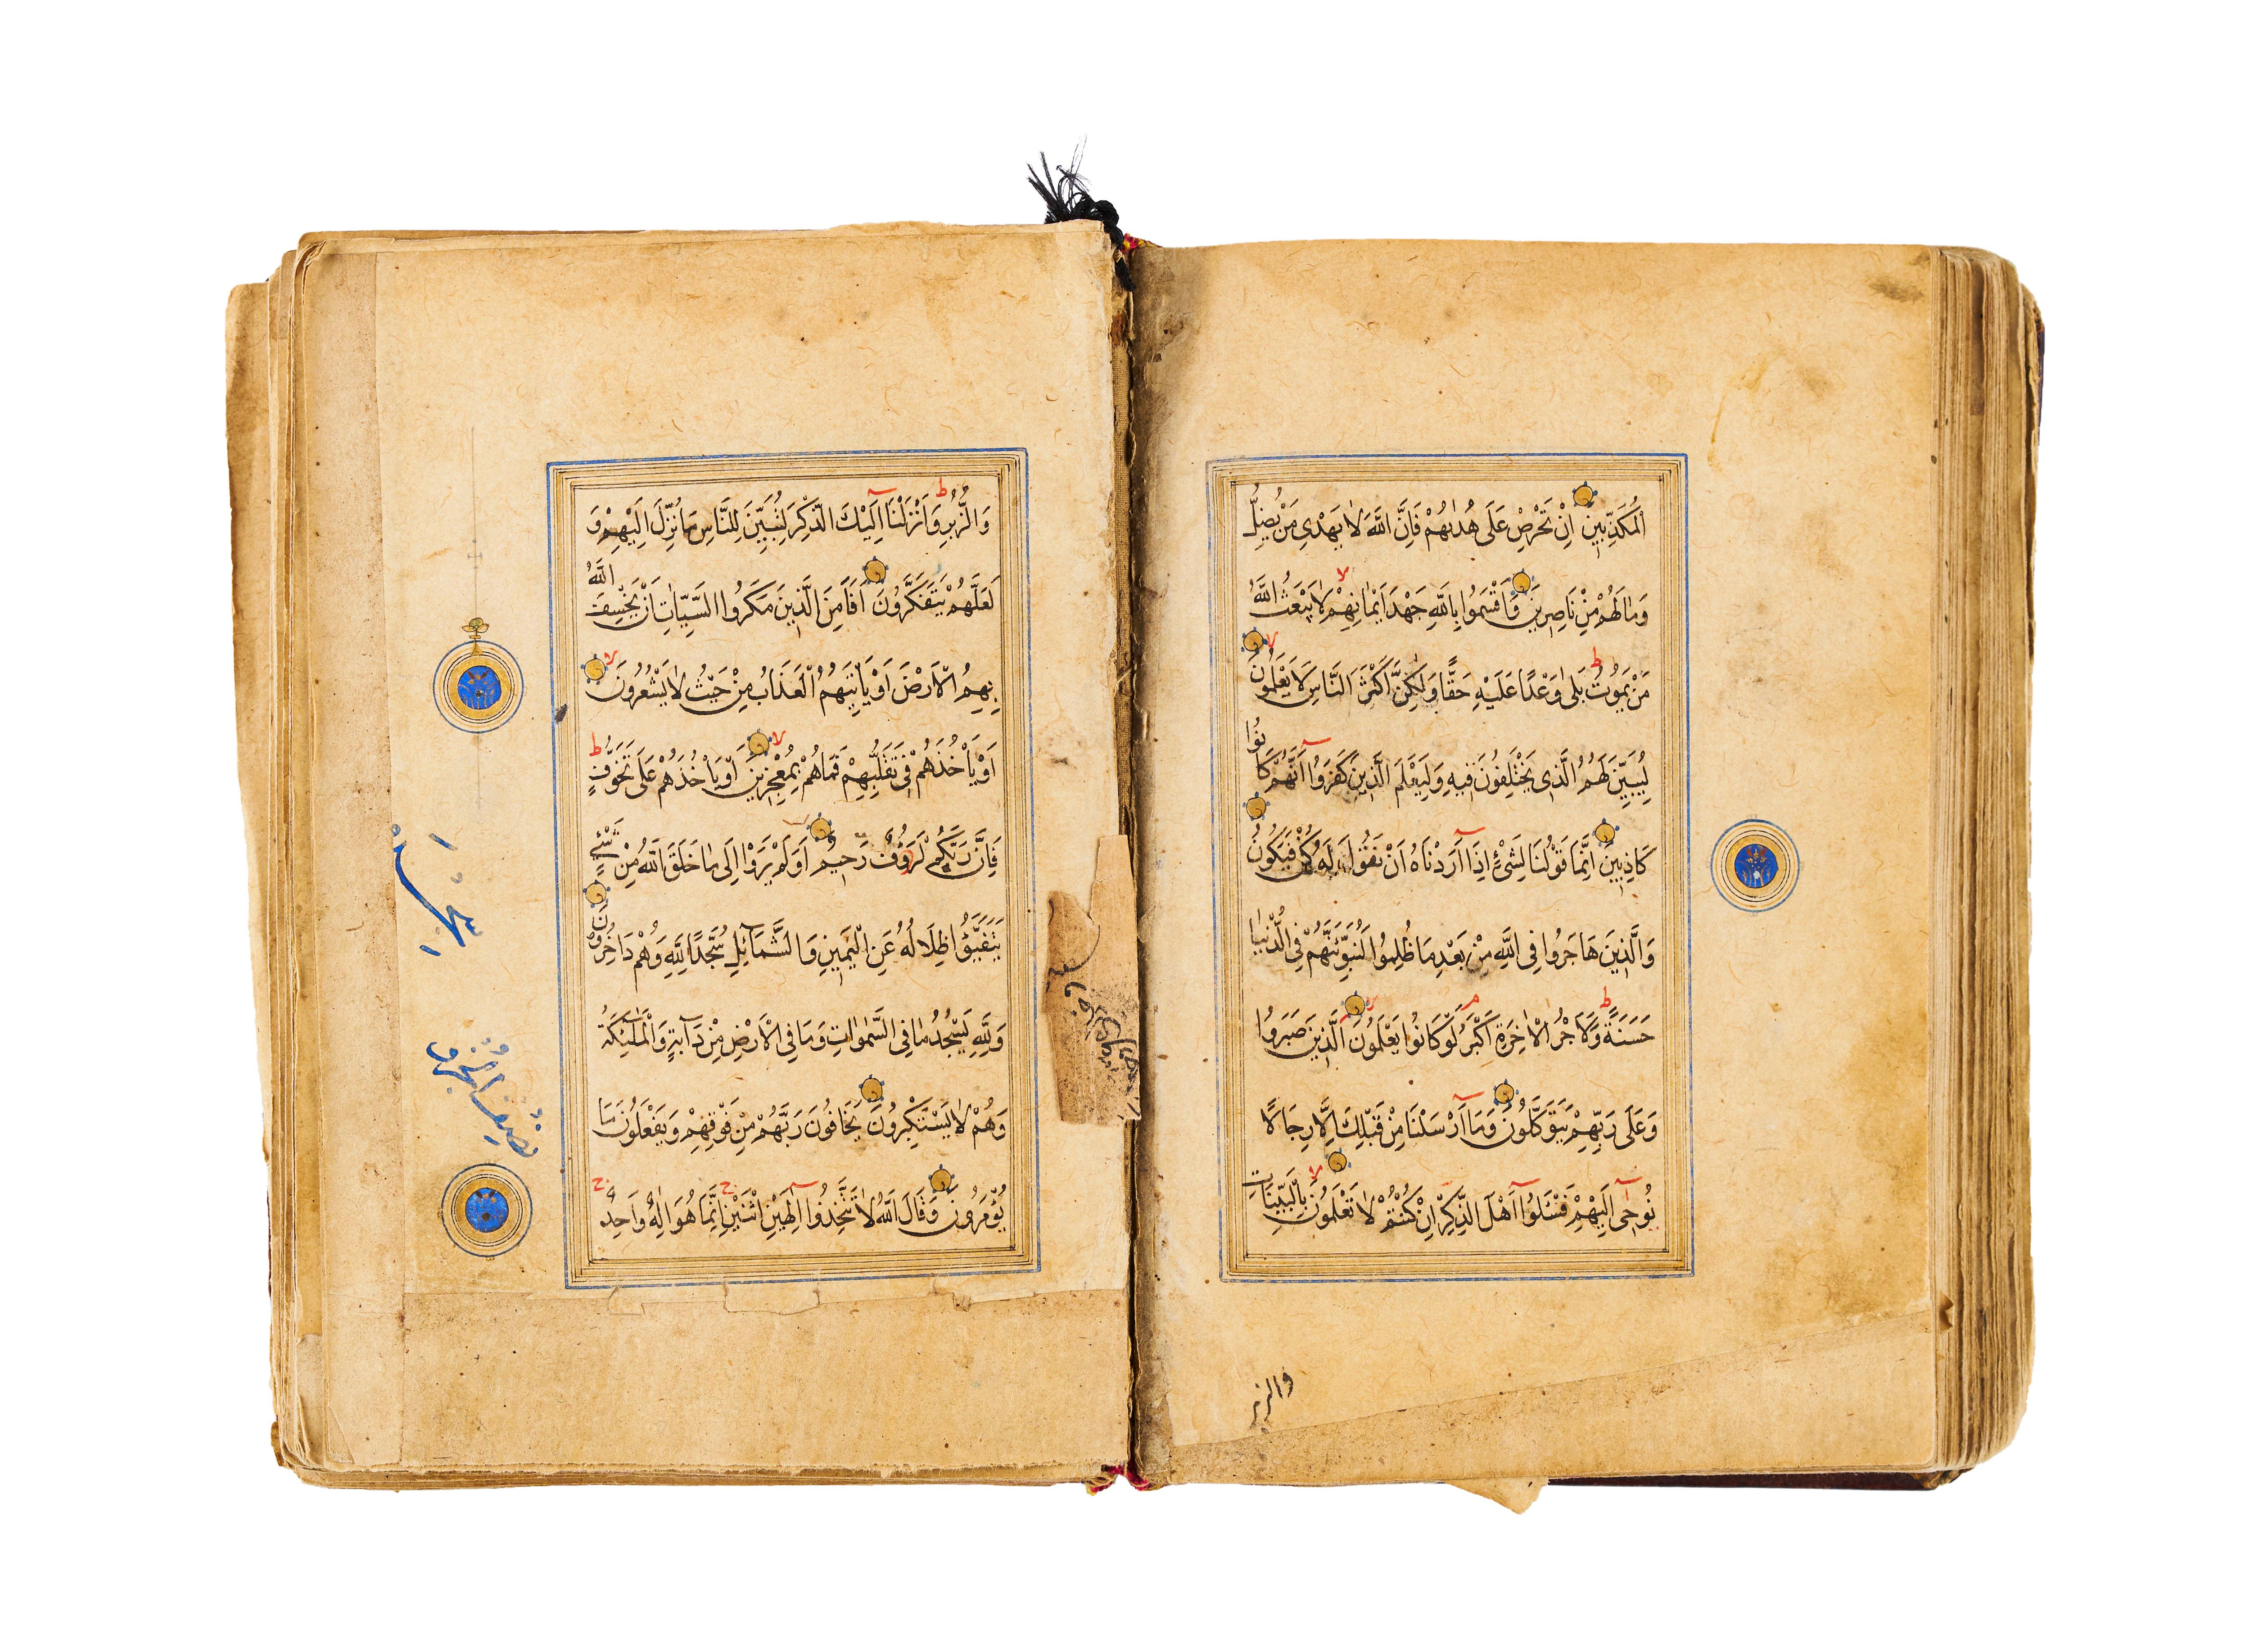 الْمُكَذِّبِينَ اِنْ تَحْرِصْ عَلَى هُدٰىهُمْ فَاِنَّ اللّٰهَ لَا يَهْدِى مَنْ يُضِلُّ
وَمَا لَهُمْ مِنْ نَاصِرِينَ وَاَقْسَمُوا بِاللّٰهِ جَهْدَ اَيْمَانِهِمْ لَا يَبْعَثُ اللّٰهُ
مَنْ يَمُوتُ بَلٰى وَعْدًا عَلَيْهِ حَقًّا وَلٰكِنَّ اَكْثَرَ النَّاسِ لَا يَعْلَمُونَ
لِيُبَيِّنَ لَهُمُ الَّذِى يَخْتَلِفُونَ فِيهِ وَلِيَعْلَمَ الَّذِينَ كَفَرُوا اَنَّهُمْ كَانُوا
كَاذِبِينَ اِنَّمَا قَوْلُنَا لِشَىْءٍ اِذَا اَرَدْنَاهُ اَنْ نَقُولَ لَهُ كُنْ فَيَكُونُ
وَالَّذِينَ هَاجَرُوا فِى اللّٰهِ مِنْ بَعْدِ مَا ظُلِمُوا لَنُبَوِّئَنَّهُمْ فِى الدُّنْيَا
حَسَنَةً وَلَاَجْرُ الْاٰخِرَةِ اَكْبَرُ لَوْ كَانُوا يَعْلَمُونَ الَّذِينَ صَبَرُوا
وَعَلَى رَبِّهِمْ يَتَوَكَّلُونَ وَمَا اَرْسَلْنَا مِنْ قَبْلِكَ اِلَّا رِجَالًا
نُوحِى اِلَيْهِمْ فَسْئَلُوا اَهْلَ الذِّكْرِ اِنْ كُنْتُمْ لَا تَعْلَمُونَ بِالْبَيِّنَاتِ
والزبر
وَالزُّبُرِ وَاَنْزَلْنَا اِلَيْكَ الذِّكْرَ لِتُبَيِّنَ لِلنَّاسِ مَا نُزِّلَ اِلَيْهِمْ وَ
لَعَلَّهُمْ يَتَفَكَّرُونَ اَفَاَمِنَ الَّذِينَ مَكَرُوا السَّيِّاٰتِ اَنْ يَخْسِفَ اللّٰهُ
بِهِمُ الْاَرْضَ اَوْ يَاْتِيَهُمُ الْعَذَابُ مِنْ حَيْثُ لَا يَشْعُرُونَ
اَوْ يَاْخُذَهُمْ فِى تَقَلُّبِهِمْ فَمَا هُمْ بِمُعْجِزِينَ اَوْ يَاْخُذَهُمْ عَلَى تَخَوُّفٍ
فَاِنَّ رَبَّكُمْ لَرَؤُفٌ رَحِيمٌ اَوَلَمْ يَرَوْا اِلَى مَا خَلَقَ اللّٰهُ مِنْ شَىْءٍ
يَتَفَيَّؤُا ظِلَالُهُ عَنِ الْيَمِينِ وَالشَّمَائِلِ سُجَّدًا لِلّٰهِ وَهُمْ دَاخِرُونَ
وَلِلّٰهِ يَسْجُدُ مَا فِى السَّمٰوَاتِ وَمَا فِى الْاَرْضِ مِنْ دَابَّةٍ وَالْمَلٰئِكَةُ
وَهُمْ لَا يَسْتَكْبِرُونَ يَخَافُونَ رَبَّهُمْ مِنْ فَوْقِهِمْ وَيَفْعَلُونَ مَا
يُؤْمَرُونَ وَقَالَ اللّٰهُ لَا تَتَّخِذُوا اِلٰهَيْنِ اثْنَيْنِ اِنَّمَا هُوَ اِلٰهٌ وَاحِدٌ